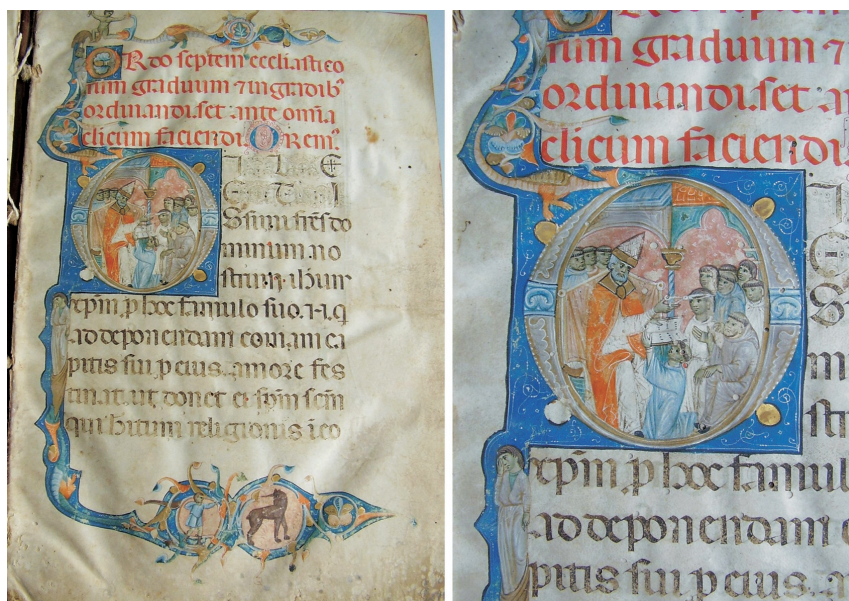 ORdo septem ecclīastico
rum graduum ⁊ in gradibꝰ
ordinandi. set ante omīa
clicum faciendi. Orem⁹.
Ssimi frēs do
minum no
strum
xp̄m. p hoc famulo suo. qͥ
ad deponendam comam ca
pitis sui p eius. amore fes
tinat. ut donet ei sp̄m sc̄m
qui habitum religionis ī eo
rum graduum ⁊
ordinandi. set
clicum faciendi.
xp̄m. p hoc famul
ad deponendam
pitis sui p eius. a